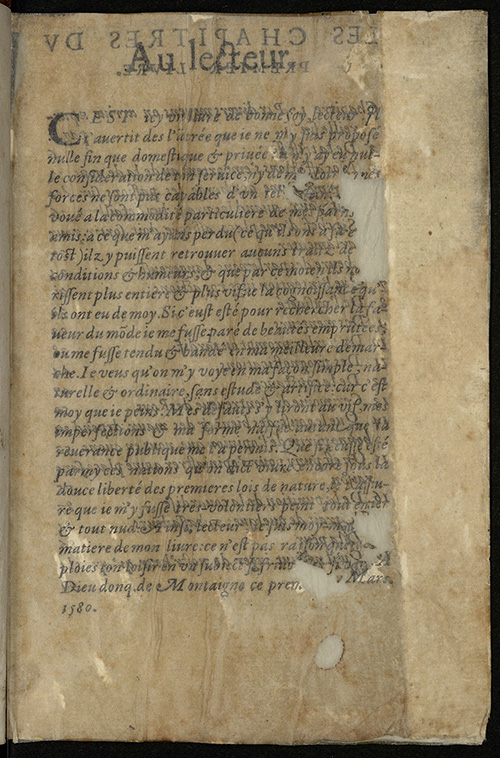 Au lecteur.
C'EST icy un liure de bonne foy, lecteur. Il
t'avertit des l'entrée que ie ne m'y suis proposé
nulle fin que domestique & privée: ie n'y ay eu nul-
le consideration de ton service, ny de ma mes
forces ne sont pas capables d'vn tel
voué a la commodité particuliere de mes paren
amis: a ce que m'ayans perdu (ce qu'ils ont a faire
tost) ilz y puissent retrouver aucuns traitz de
conditions & humeurs, & que par ce moien ilz no
rissent plus entiere & plus vifue la conoissance qu'
ils ont eu de moy. Si c'eust esté pour rechercher la fa-
ueur du mõde ie me fusse paré de beautés empruntées,
ou me fusse tendu & bandé en ma meilleure demar-
che. Ie veus qu'on m'y voye en ma façon simple, na-
turelle & ordinaire, sans estude & artifice: car c'est
moy que ie peins. Mes defauts s'y liront au vif, mes
imperfections & ma forme naifue autant que la
reuerance publique me l'a permis. Que si i'eusse esté
parmy ces nations qu'on dict viure encore sous la
douce liberté des premieres lois de nature, ie t'assu-
re que ie m'y fusse tres-volontiers peint tout entier
& tout nud. Ainsi, lecteur, ie suis moy-mes
matiere de mon liure: ce n'est pas raison que
ploies ton loisir en vn subiect si friuo A
Dieu donq. de Montaigne ce prem Mars.
1580.